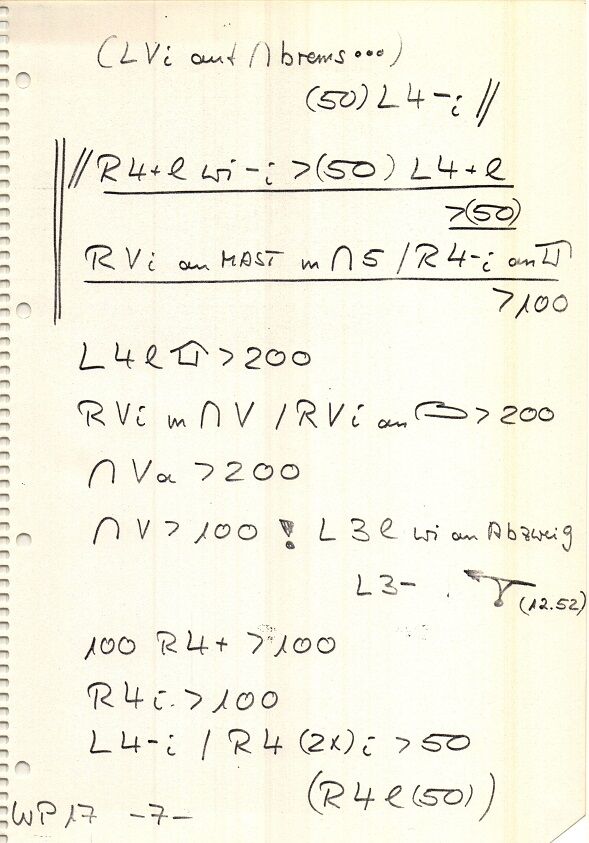 (LVi auf ∩ brems...)
(50) L4-i //
// R4+l wi-i >(50) L4+l
>(50)
RVi an MAST in ∩5 / R4-i an
>100
L4l >200
RVi in ∩V / RVi an >200
∩Va >200
∩V>100 ! L3l wi an Abzweig
L3- (12.52)
100 R4+ >100
R4i >100
L4-i / R4 (2x) i >50
(R4l(50))
WP17 -7-